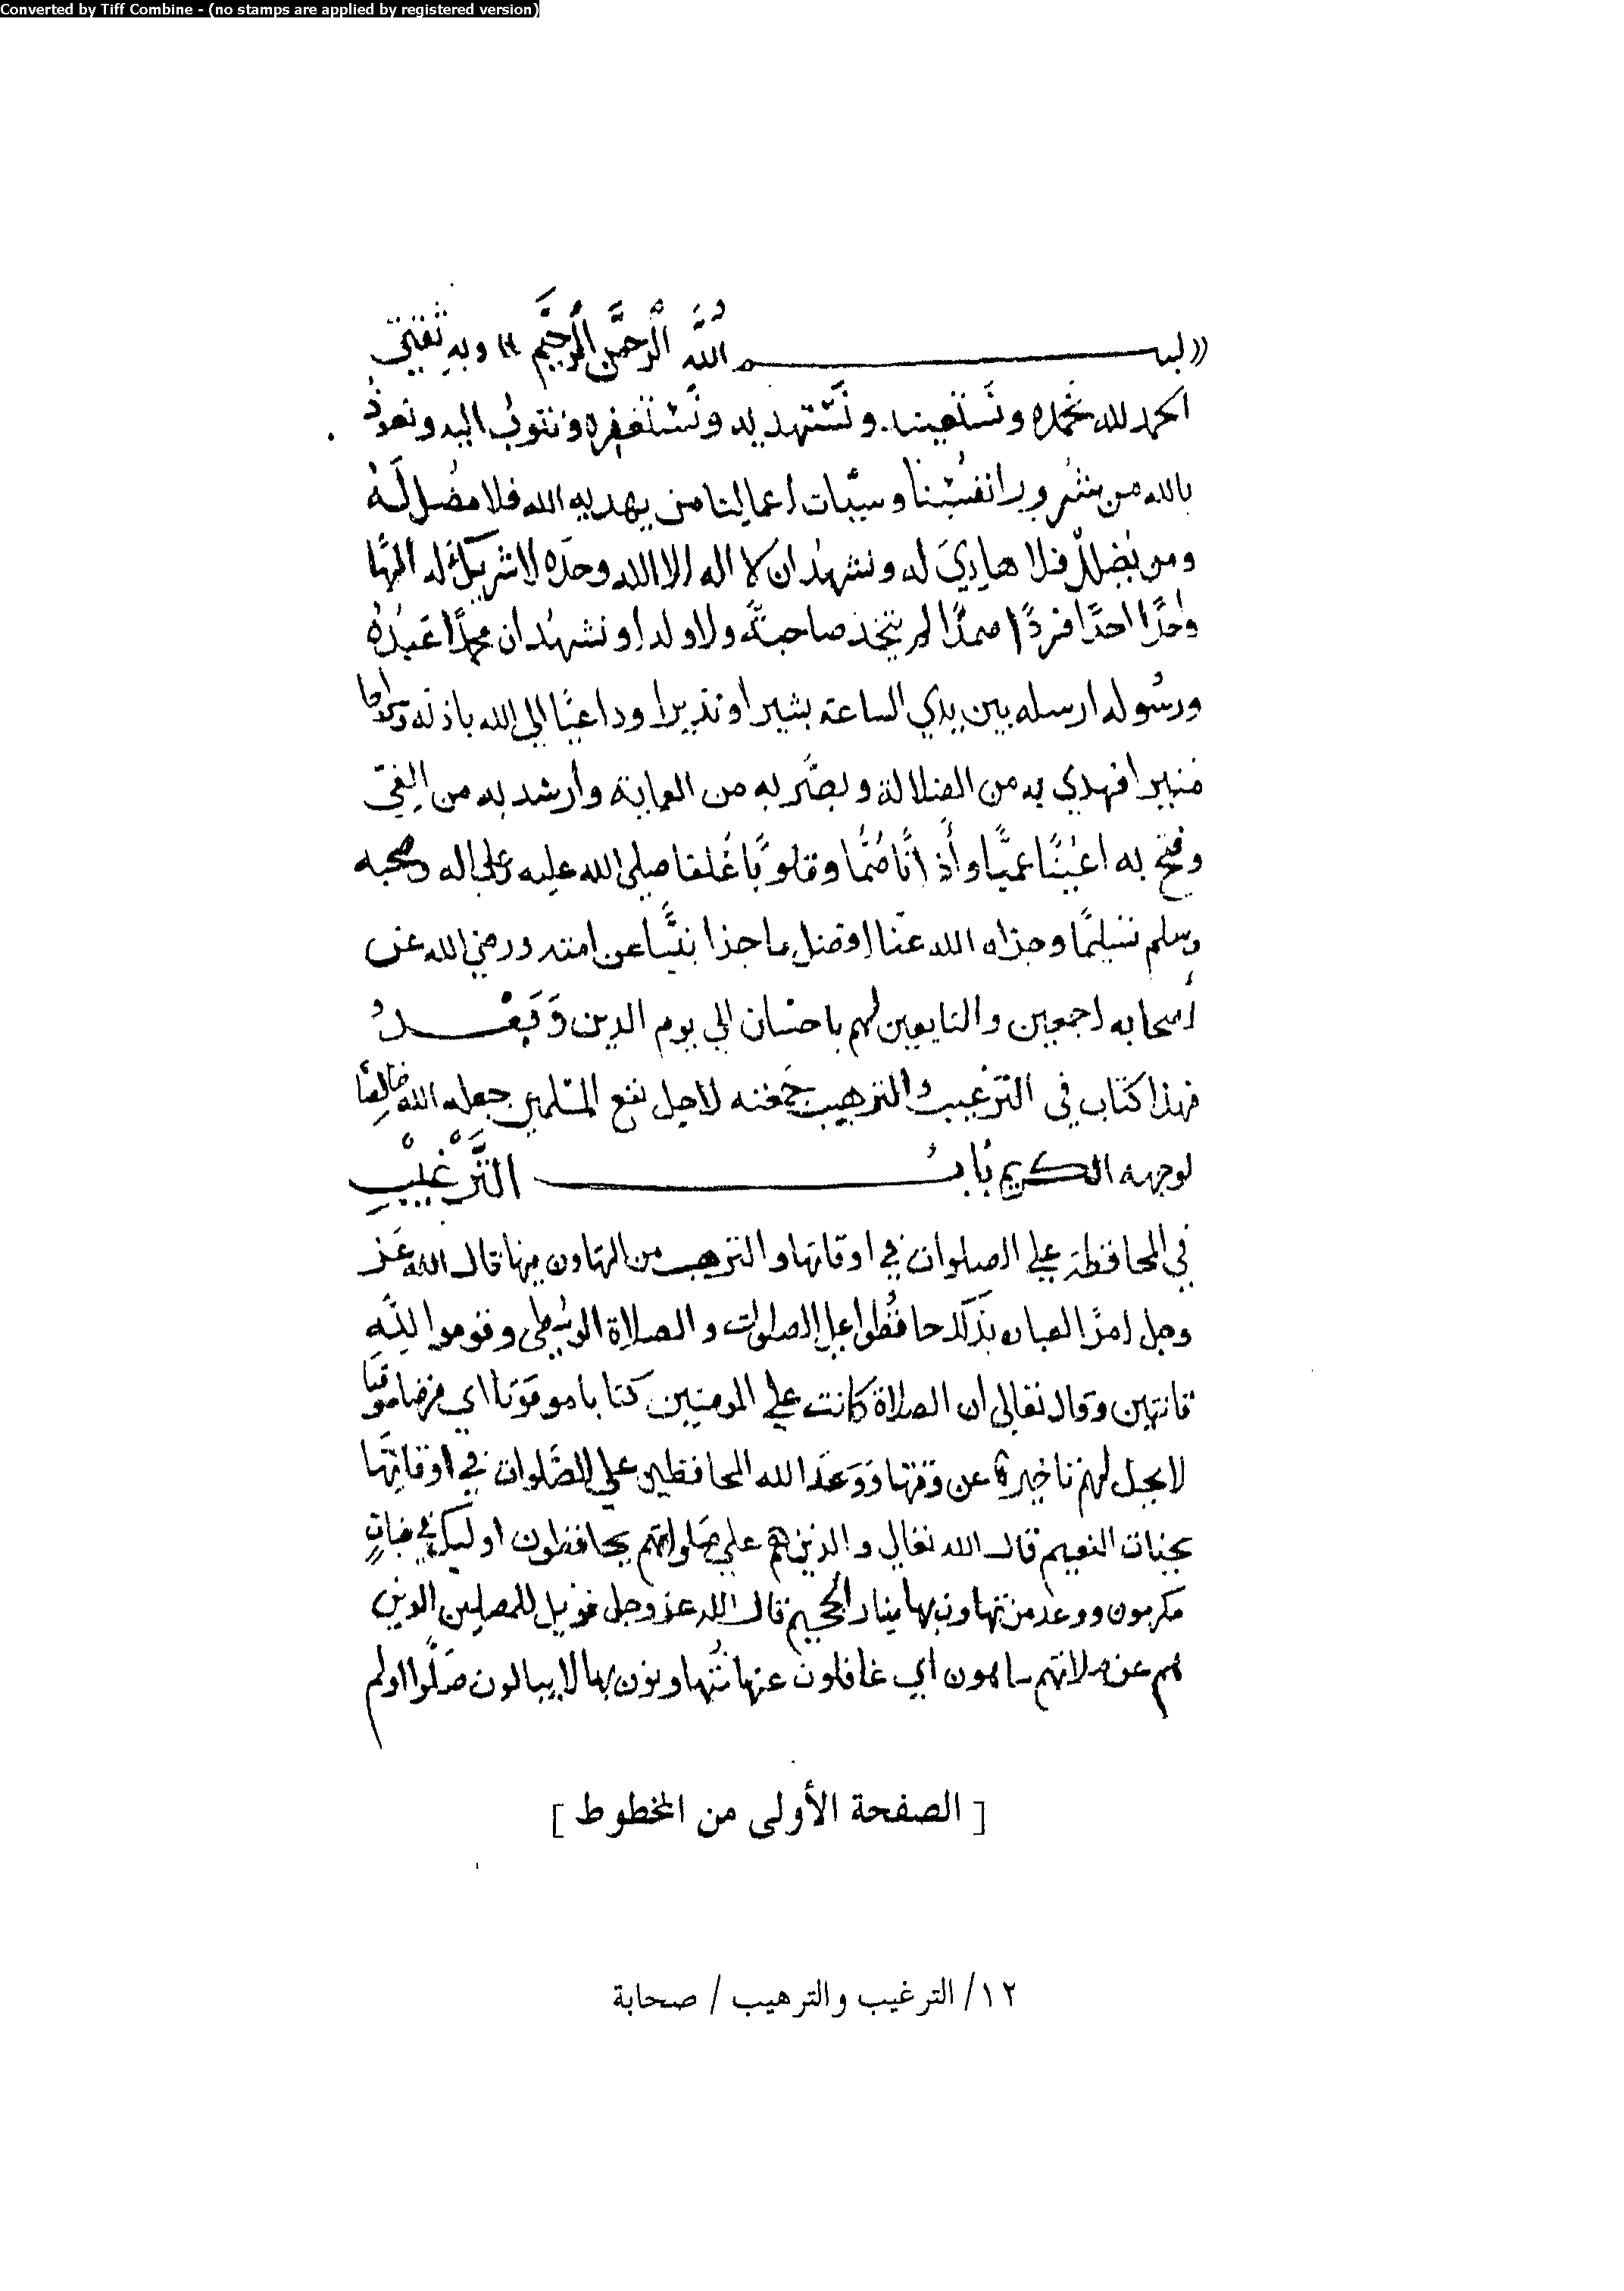 Converted by Tiff Combine - (no stamps are applied by registered version)
بسم اللهُ الرحمن الرحيم وبه ثقتي
الحمد لله نحمده ونستعينه ونستهديه ونستغفره ونتوب اليه ونعوذ
بالله من شرور انفسنا وسيئات اعمالنا من يهديه الله فلا مضل له
ومن يضلل فلا هادي له ونشهد ان لا اله الا الله وحده لا شريك له الهًا
واحدًا احدًا فردًا صمدًا لم يتخذ صاحبة ولا ولدا ونشهد ان محمدًا عبده
ورسوله ارسله بين يدي الساعة بشيرا ونذيرا وداعيًا الي الله باذنه وسراجا
منيرا فهدي به من الضلالة وبصّر به من العماية وأرشد به من الغيّ
وفتح به اعينًا عميًا وأذانًا صمًّا وقلوبًا غلفا صلى الله عليه وعلى اله وصحبه
وسلم تسليمًا وجزاه الله عنّا افضل ما جزا نبيًّا عن امته ورضي الله عن
أصحابه اجمعين والتابعين لهم باحسان الي يوم الدين وَبَعْدُ
فهذا كتاب في الترغيب والترهيب جمعته لاجل نفع المسلمين جعله الله خالصًا
لوجهه الكريم بابُ التَّرْغيْبِ
في المحافظة علي الصلوات في اوقاتها والترهيب من التهاون بها قال الله عَز
وجل امرًا لعباده بذلك حافظوا علي الصلوات والصلاة الوسطي وقوموا لله
قانتين وقال تعالي ان الصلاة كانت علي المومنين كتابا موقوتا اي فرضا موقتا
لا يحل لهم تاخيرها عن وقتها ووعد الله المحافظين علي الصَّلوات في اوقاتِها
بجنات النعيم قال الله تعالي والذين هم علي صلواتهم يحافظون اوليك في جناتٍ
مكرمون ووعد من تهاون بها بنار الجحيم قال الله عز وجل فويل للمصلين الذين
هم عن صلاتهم ساهون أي غافلون عنها متهاونون بها لا يبالون صَلَّوا اولم
[ الصفحة الأولى من المخطوط ]
١٢/ الترغيب والترهيب / صحابة